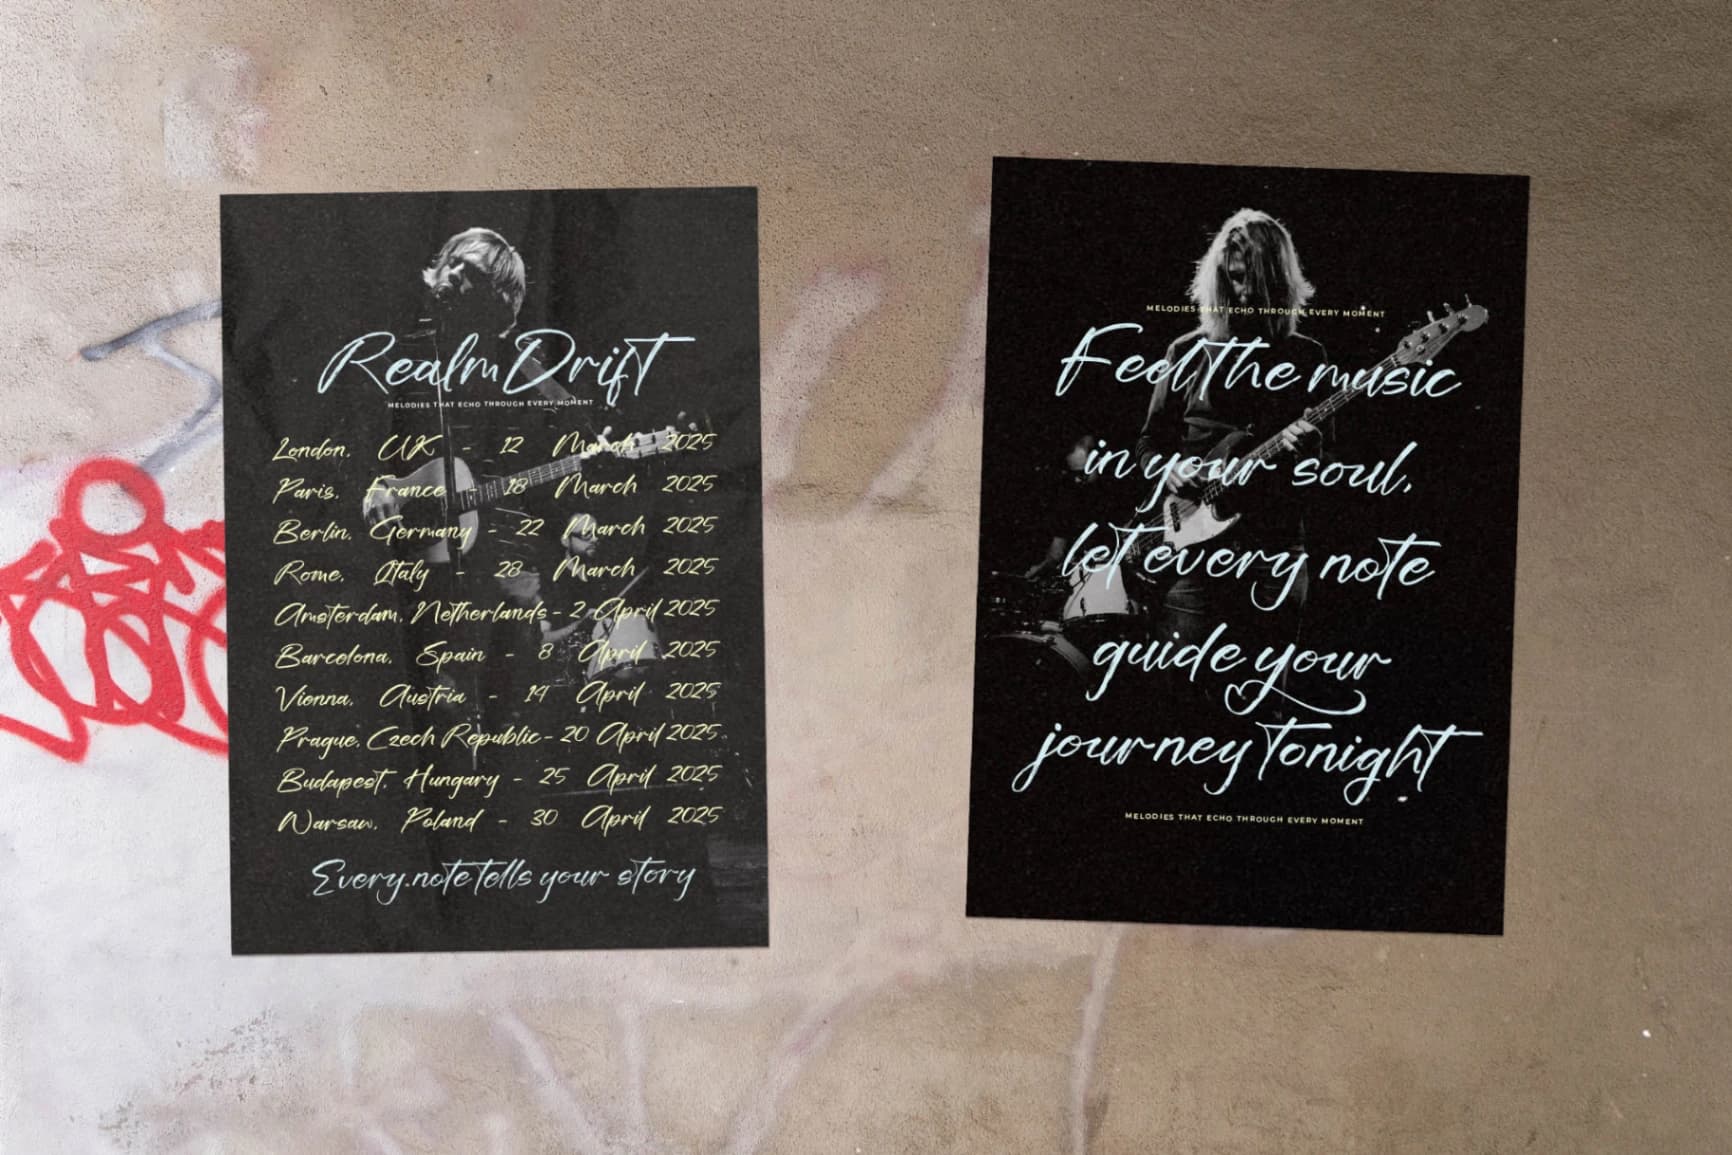 Realm Drift
MELODIES THAT ECHO THROUGH EVERY MOMENT
London, UK - 12 March 2025
Paris, France - 18 March 2025
Berlin, Germany - 22 March 2025
Rome, Italy - 28 March 2025
Amsterdam, Netherlands - 2 April 2025
Barcelona, Spain - 8 April 2025
Vienna, Austria - 14 April 2025
Prague, Czech Republic - 20 April 2025
Budapest, Hungary - 25 April 2025
Warsaw, Poland - 30 April 2025
Every note tells your story
MELODIES THAT ECHO THROUGH EVERY MOMENT
Feel the music
in your soul,
let every note
guide your
journey tonight
MELODIES THAT ECHO THROUGH EVERY MOMENT